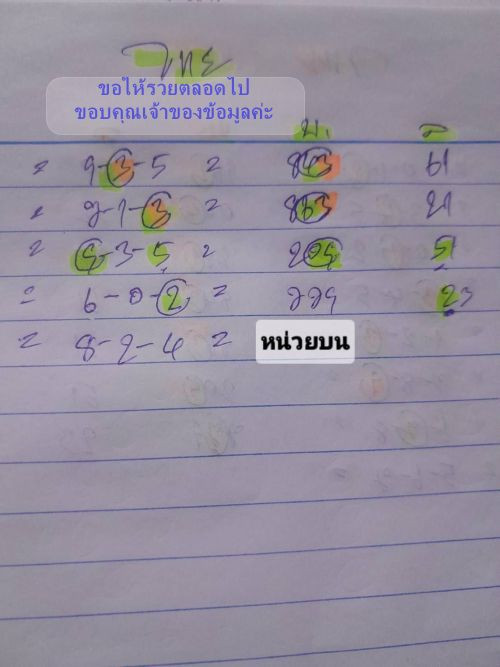 ไทย
ขอให้รวยตลอดไป
ขอบคุณเจ้าของข้อมูลค่ะ
บ. ล
= 9-3-5 = 843 61
= 2-1-3 = 883 21
= 9-3-5 = 51
= 6-0-2 = 229 23
= 8-2-4 = หน่วยบน